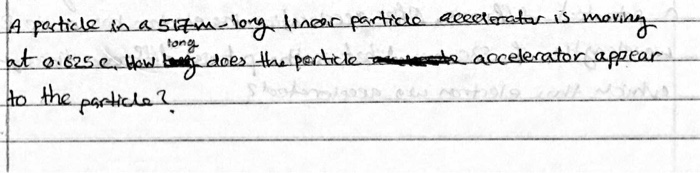 A particle in a 517m-long linear particle accelerator is moving
at 0.625 c. How long does the particle accelerator appear
to the particle?